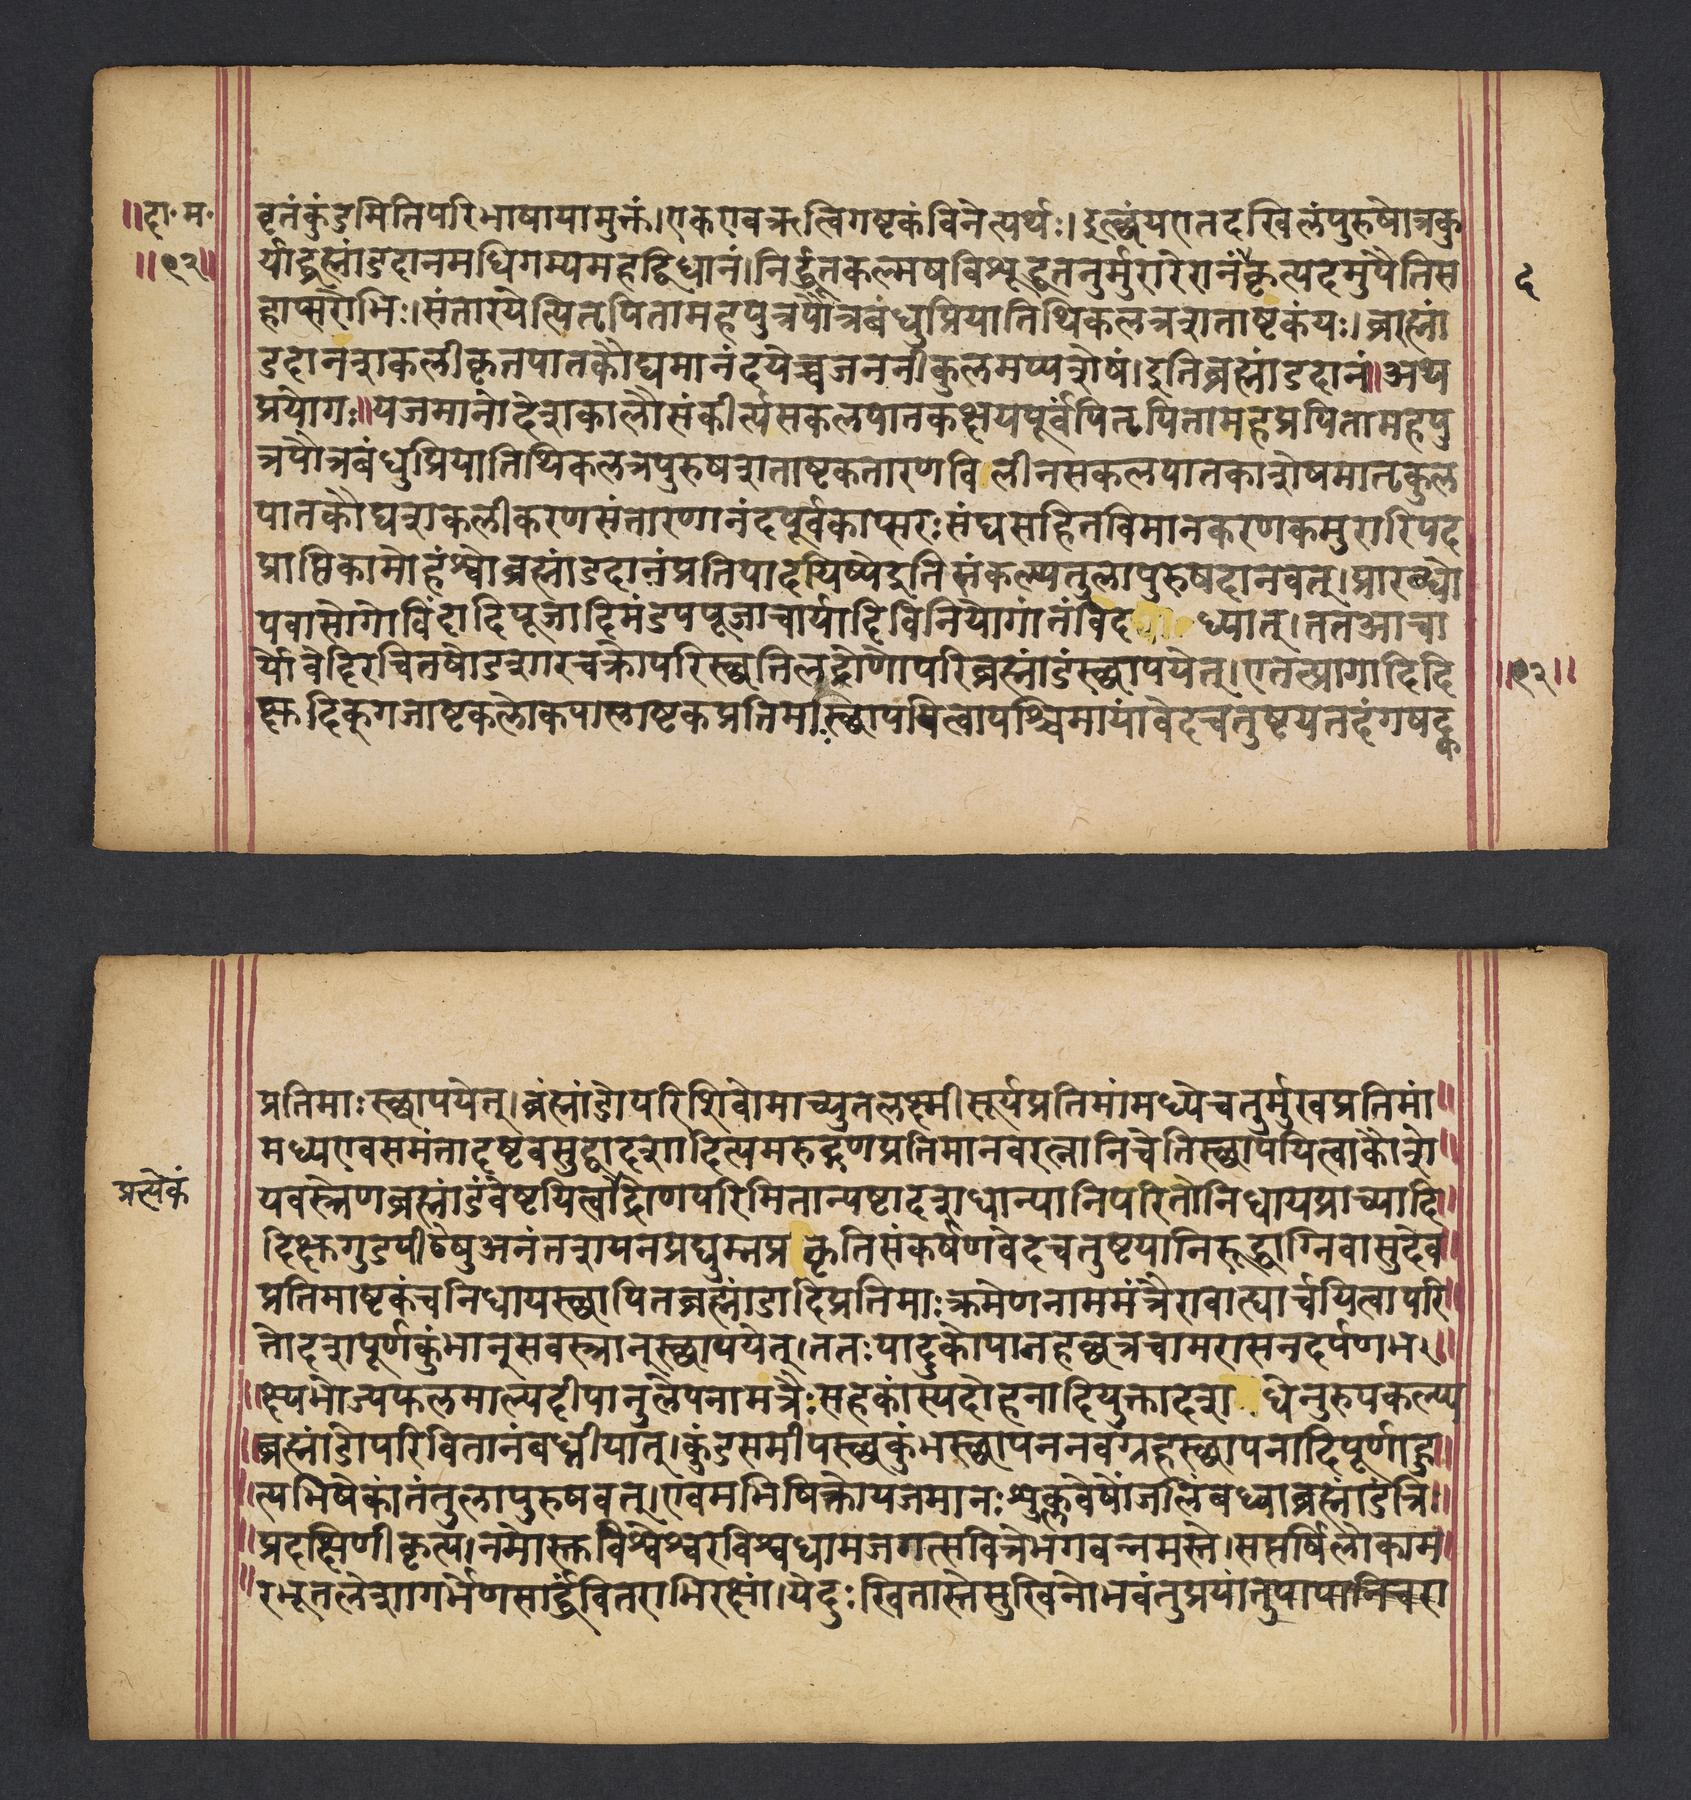 ॥दा॰म॰
॥१२॥
वृतंकुंडमितिपरिभाषायामुक्तं।एकएवऋत्विगष्टकंविनेत्यर्थः।इत्छंयएतदखिलंपुरुषोत्रकु
र्याद्ब्रह्मांडदानमधिगम्यमहद्विधानं।निर्द्धूतकल्मषविश्रूद्धतनुर्मुरारेरानंकृत्यदमुपैतिस
हाप्सरोभिः।संतारयेत्पितृपितामहपुत्रपौत्रबंधुप्रियातिथिकलत्रशताष्टकंयः।ब्राह्मां
डदानशकलीकृतपातकौघमानंदयेच्चजननीकुलमप्यशेषं।इतिब्रह्मांडदानं॥अथ
प्रयोगः॥यजमानोदेशकालौसंकीर्त्यसकलपातकक्षयपूर्वपितृपितामहप्रपितामहपु
त्रपौत्रबंधुप्रियातिथिकलत्रपुरुषशताष्टकतारणविलीनसकलपातकाशेषमातृकुल
पातकौघशकलीकरणसंतारणानंदपूर्वकाप्सरःसंघसहितविमानकरणकमुरारिपद
प्राप्तिकामोहंश्वोब्रह्मांडदानंप्रतिपादयिष्येइतिसंकल्प्यतुलापुरुषदानवत्।प्रारब्धो
पवासोगोविंदादिपूजादिमंडपपूजाचार्यादिविनियोगांतंविदध्यात्।ततआचा
र्योवेदिरचितषोडशारचक्रोपरिस्छतिलद्रोणोपरिब्रह्मांडंस्छापयेत्।एतत्प्रागादिदि
क्ष्कदिक्गजाष्टकलोकपालाष्टकप्रतिमाःस्छापयित्वापश्चिमायांवेदचतुष्टयतदंगषट्क
६
॥१२॥
प्रतिमाःस्छापयेत्।ब्रंह्मांडोपरिशिवोमाच्युतलक्ष्मीसूर्यप्रतिमांमध्येचतुर्मुखप्रतिमां
मध्यएवसमंतादष्टवसुद्वादशादित्यमरुद्गणप्रतिमानवरत्नानिचेतिस्छापयित्वाकौशे
प्रत्येकं
यवस्त्रेणब्रह्मांडंवेष्टयित्वाद्रोणपरिमितान्यष्टादशधान्यानिपरितोनिधायप्राच्यादि
दिक्ष्कगुडपीठेषुअनंतशयनप्रद्युम्नप्रकृतिसंकर्षणवेदचतुष्टयानिरूद्धाग्निवासुदेव
प्रतिमाष्टकंचनिधायस्छापितब्रह्मांडादिप्रतिमाःक्रमेणनाममंत्रैरावाह्यार्चयित्वापरि
तोदशपूर्णकुंभान्सवस्त्रान्स्छापयेत्।ततःपादुकोपानहछत्रचामरासनदर्पणभ
क्ष्यभोज्यफलमाल्यदीपानुलेपनामत्रैःसहकांस्यदोहनादियुक्तादशधेनुरुपकल्प्य
ब्रह्मांडोपरिवितानंबध्नीयात्।कुंडसमीपस्छकुंभस्छापननवग्रहस्छापनादिपूर्णाहु
त्यभिषेकांतंतुलापुरुषवत्।एवमभिषिक्तोयजमानःश्रुक्लवेषोंजलिंबध्वाब्रह्मांडंत्रिः
प्रदक्षिणीकृत्य।नमोस्क्तविश्वेश्वरविश्वधामजगत्सवित्रेभगवन्नमस्ते।सप्तर्षिलोकाम
रभूतलेशागर्भेणसार्द्धंवितराभिरक्षां।येदुःखितास्तेसुखिनोभवंतुप्रयांतुपापानिचरा